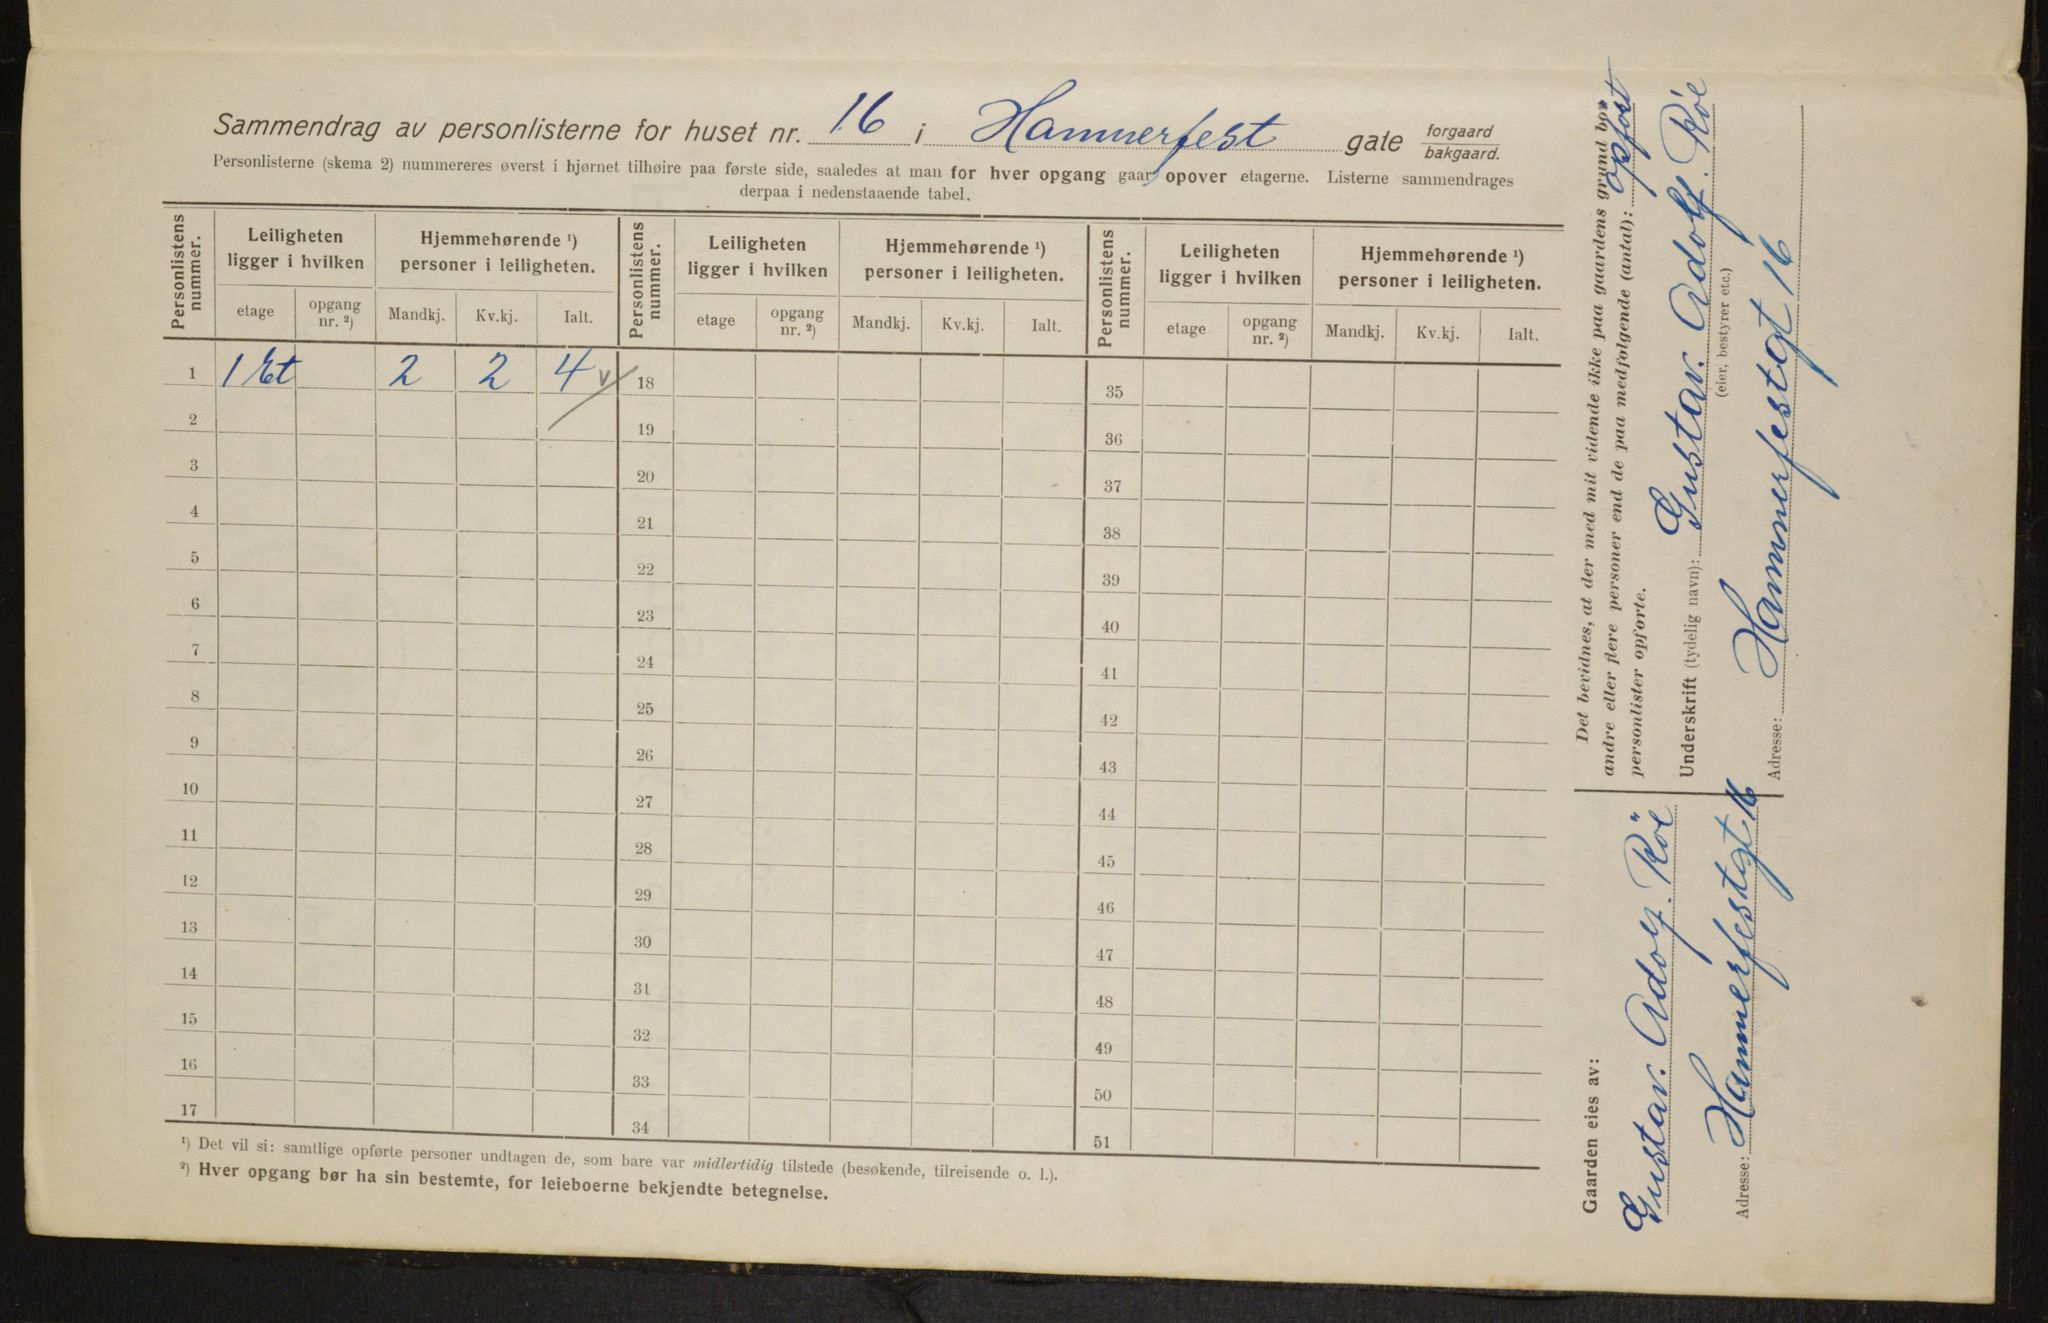 Sammendrag av personlisterne for huset nr. 16 i Hammerfest gate forgaard bakgaard.
Personlisterne (skema 2) nummereres øverst i hjørnet tilhøire paa første side, saaledes at man for hver opgang gaar opover etagerne. Listerne sammendrages
derpaa i nedenstaaende tabel.
Personlistens nummer. Leiligheten ligger i hvilken Hjemmehørende ¹) personer i leiligheten. Personlistens nummer. Leiligheten ligger i hvilken Hjemmehørende ¹) personer i leiligheten. Personlistens nummer. Leiligheten ligger i hvilken Hjemmehørende ¹) personer i leiligheten.
etage opgang nr. ²) Mandkj. Kv.kj. Ialt. etage opgang nr. ²) Mandkj. Kv.kj. Ialt. etage opgang nr. ²) Mandkj. Kv.kj. Ialt.
1 1 Et 2 2 4 18 35
2 19 36
3 20 37
4 21 38
5 22 39
6 23 40
7 24 41
8 25 42
9 26 43
10 27 44
11 28 45
12 29 46
13 30 47
14 31 48
15 32 49
16 33 50
17 34 51
¹) Det vil si: samtlige opførte personer undtagen de, som bare var midlertidig tilstede (besøkende, tilreisende o. l.).
²) Hver opgang bør ha sin bestemte, for leieboerne bekjendte betegnelse.
Det bevidnes, at der med mit vidende ikke paa gaardens grund bor
andre eller flere personer end de paa medfølgende (antal): opført
personlister opførte.
Underskrift (tydelig navn): Gustav. Adolf. Röe
(eier, bestyrer etc.)
Adresse: Hammerfestgt 16
Gaarden eies av:
Gustav. Adolf. Röe
Adresse: Hammerfestgt 16